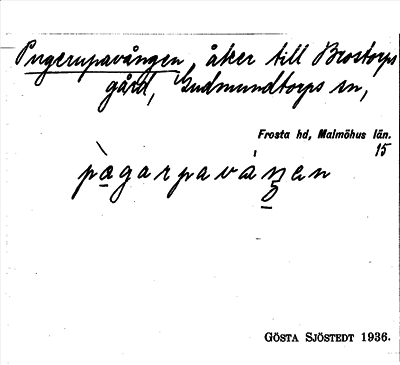 Pugerupavången, åker till Brostorps
gård, Gudmundtorps sn,
Frosta hd, Malmöhus län.
15
pægarpavåŋen
GÖSTA SJÖSTEDT 1936.